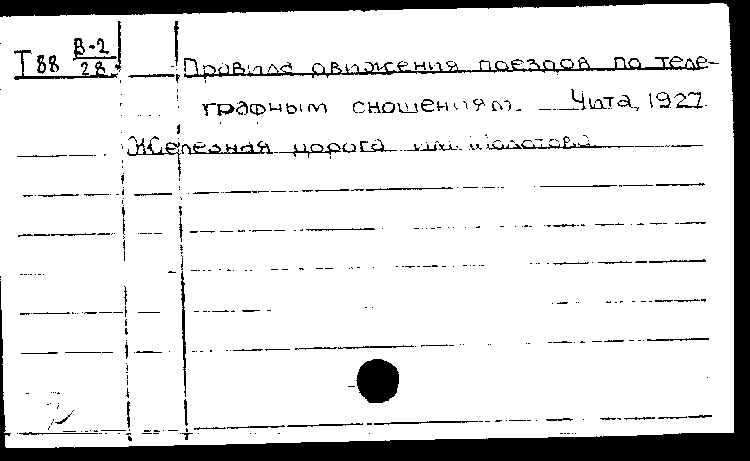 Т88 В-2/28. Правила движения поездов по теле-
графным сношениям. Чита, 1927.
Железная дорога им. Молотова